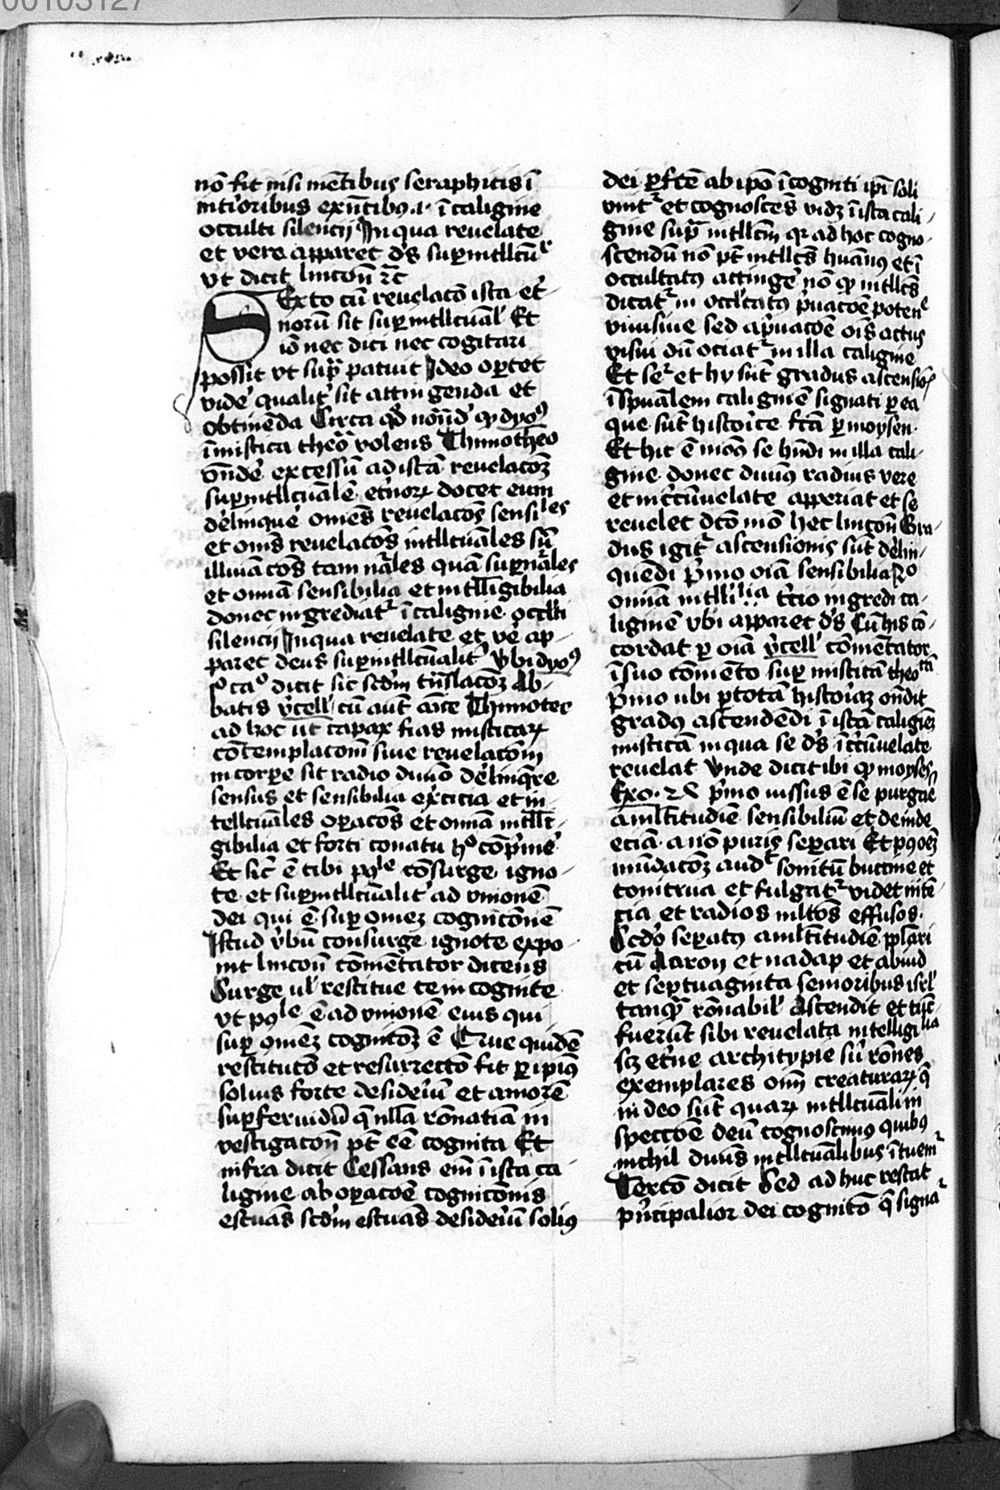 00103127
nō fit nisi mētibus seraphicis ī
interioribus exn̄tibus .i. ī caligine
occulti silencij In qua reuelate
et vere apparet d̄s suꝑintllcūr
vt dicit lincoñ ⁊c̄
Sexto cū reuelacō ista et̾
noruʒ sit suꝑintllcual̾ Et
iō nec dici nec cogitari
possit vt sup̄ patuit Ideo oꝑtet
vide̾ qualit̾ sit attingenda et
obtinēda Circa qd̾ notād̾ ꝙ dyoꝰ
ī mistica theoᵃ volens Thimotheo
on̄de̾ excessū ad istā reuelacōʒ
suꝑintllcualē et̾noꝝ docet eum
de̾linque̾ omēs reuelacōes sensiles
et omēs reuelacōes intllcuales siue
illūiacōes tam nāles quā suꝑnāles
et omīa sensibilia et intlligibilia
donec ingrediat᷑ ī caligine occl̾ti
silencij In qua reuelate et ve̾ ap-
paret deus suꝑintllcualit̾ Vbi dyoꝰ
pᵒ caᵒ dicit sic scdm̄ trnslacōʒ Ab-
batis v̾cell̾ Tu aut̄ amīce Thimotee
ad hoc ut capax fias misticaꝝ
cōtemplacōnū siue reuelacōnū
in corꝑe sit radio diuīo de̾linq̄re
sensus et sensibilia ex̾cicia et in-
tellcuales oꝑacōes et omīa intlli-
gibilia et forti conatu hᵒ cōpⁱme̾
Et sic̄ ē tibi pᵒle cōsurge igno-
te et suꝑintllcualit̾ ad vnionē
dei qui ē suꝑ omēʒ cognicōnē
Istud v̾bū consurge ignote expo-
nit lincoñ cōmētator dicens
Surge ul̾ restitue te incognite
vt pᵒle ē ad vnionē eius qui
suꝑ omēʒ cognicōʒ ē Que quidē
restitucō et resurrectō fit ꝑ ipiꝰ
solius forte desideriū et amorē
suꝑferuidū q̄ nllā rōnatiuā in
vestigacōnē pt̄ eē cognita Et
infra dicit Cessans em̄ ī ista ca-
ligine ab oꝑacōe cognicōnis
estuās scdm̄ estuās desideriū soliꝰ
dei ꝑfcē ab ipō īcogniti ipī soli
vnit᷑ et cognoscēs vidʒ ī ista cali-
gine sup̄ intllcm̄ qꝛ ad hoc cogno-
scendū nō pt̄ intllcs̄ hūanꝰ et ī
occultatꝰ attinge̾ nō ꝙ intllcs̄
dicat᷑ in occl̾tatꝰ pⁱuacōe potencie
visiue sed a pⁱuacōe oīs actus
visiui dū ociat᷑ in illa caligine
Et se᷑ et hij sūt gradus ascensioīs
ī spūalem caliginē signati ꝑ ea
que sūt historīce fcā ꝑ moysen
Et hic ē modꝰ se hn̄di in illa cali-
gine donec diuinꝰ radius vere
et incūuelate apꝑiat et se
reuelet dcō mō Hec lincoñ Gra-
dus igit᷑ ascensionis sūt de̾lin-
quēdi Pⁱmo oīa sensibilia 2ᵒ
omīa intlliⁱˡⁱᵃ tᵉcio ingredi ca-
liginē vbi apparet d̄s Cū his cō-
cordat ꝑ oīa v̾cell̾ cōmētator
ī suo cōmēto suꝑ misticā theoᵃᵐ
Pⁱmo ubi ꝑtotā historiaʒ on̄dit
gradꝰ ascendēdi ī istā caliginē
misticā in qua se d̄s incūuelate
reuelat Vnde dicit ibi ꝙ moyses
Exo. 24 pⁱmo iussus ē se purgare
a ml̾titudīe sensibiliū et deinde
eciā a nō puris seꝑari Et pꝰ oēʒ
mūdacōʒ audᵗ sonitū buccine et
tonitrua et fulgura videt micā
cia et radios mltōs effusos
Scdo seꝑatꝰ a ml̾titudīe pplari
cū Aaron et nadap et abiud
et septuaginta senioribus isrl̾
tanqʒ rōnabil̾ Ascendit et tūc
fuerūt sibi reuelata intelligiˡⁱᵃ
scʒ et̾ne architypie siue rōnes
exemplares oīm creaturaꝝ q̄
in deo sūt quaꝝ intllcuali in
speccōe deū cognoscimꝰ quibꝰ
nichil diuīs intllcualibus ītuem᷑
Tercō dicit Sed ad huc restat
pⁱncipalior dei cognitō q̄ signa᷑